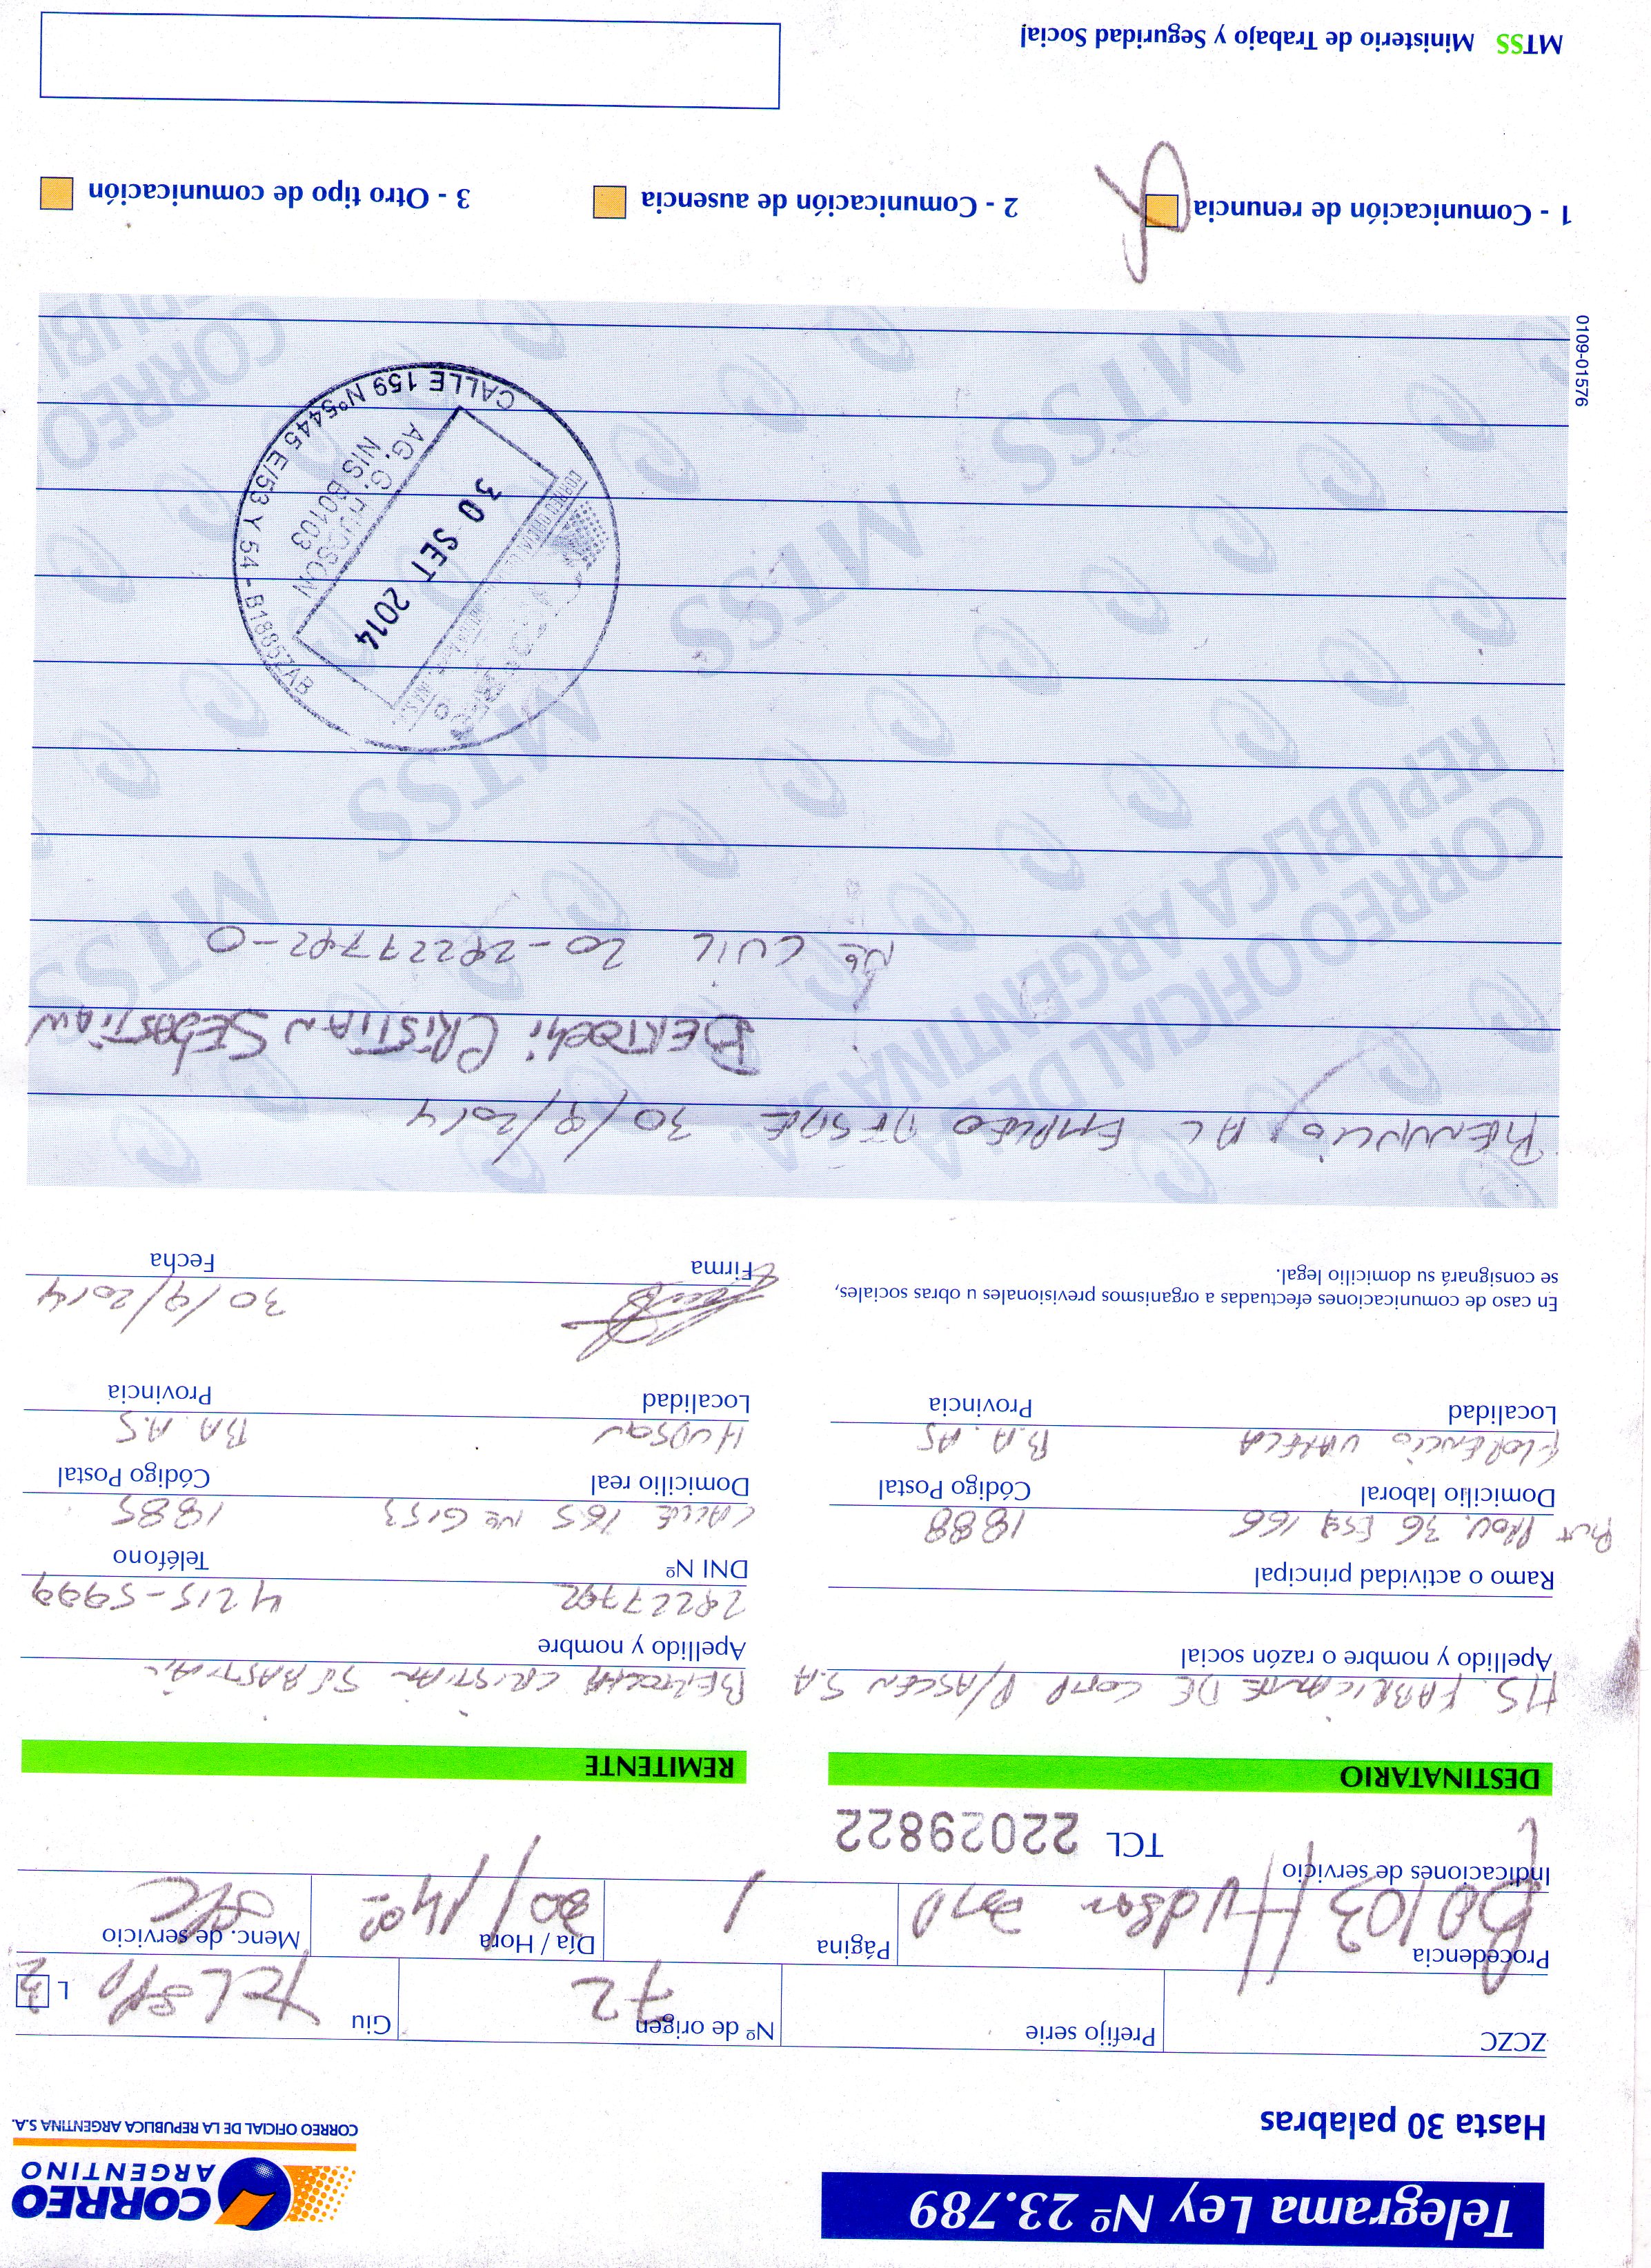 Telegrama Ley Nº 23.789
CORREO
ARGENTINO
CORREO OFICIAL DE LA REPUBLICA ARGENTINA S.A.
Hasta 30 palabras
ZCZC
Prefijo serie
Nº de origen
72
Giu
L
Procedencia
B0103 Hudson
Página
1
Día / Hora
30/14
Menc. de servicio
Indicaciones de servicio
TCL 22029822
DESTINATARIO
FABRICANTE DE COMP P/ASCEN S.A
Apellido y nombre o razón social
Ramo o actividad principal
PROV. 36 ESQ 166
1888
Domicilio laboral
Código Postal
FLORENCIO VARELA
B.A. AS
Localidad
Provincia
En caso de comunicaciones efectuadas a organismos previsionales u obras sociales,
se consignará su domicilio legal.
REMITENTE
CRISTIAN SEBASTIAN
Apellido y nombre
28227792
4215-5999
DNI Nº
Teléfono
CALLE 165 Nº 6153
1885
Domicilio real
Código Postal
HUDSON
BA. A.S
Localidad
Provincia
30/9/2014
Firma
Fecha
RENUNCIO AL EMPLEO DESDE 30/9/2014
BERTOCHI CRISTIAN SEBASTIAN
Nº CUIL 20-28227792-0
CORREO OFICIAL DE LA
REPUBLICA ARGENTINA S.A.
MTSS
MTSS
MTSS
MTSS
MTSS
CORREO
REPUBLI
30 SET 2014
AG. G. HUDSON
NIS B0103
CALLE 159 Nº5445 E/53 Y 54 - B1885ZAB
0109-01576
1 - Comunicación de renuncia
2 - Comunicación de ausencia
3 - Otro tipo de comunicación
MTSS Ministerio de Trabajo y Seguridad Social